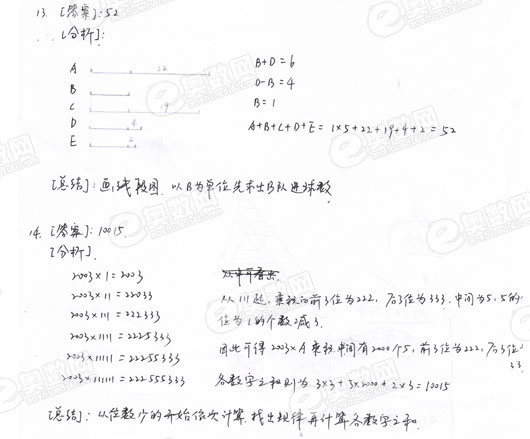 13. [答案]: 52
[分析]:
A 22
B
C 19
D 4
E 2
B+D=6
D-B=4
B=1
A+B+C+D+E=1×5+22+19+4+2=52
[总结]: 画线段图. 以B为单位先求出B队进球数
14. [答案]: 10015
[分析].
2003×1=2003
2003×11=22033
2003×111=222333
2003×1111=2225333
2003×11111=22255333
2003×111111=222555333
从111起, 乘积的前3位为222, 后3位为333. 中间为5, 5的
位为1的个数减3.
因此可得 2003×A 乘积中间有2000个5, 前3位为222, 后3位
33
各数字之和则为 3×3+5×2000+2×3=10015
[总结]: 从位数少的开始依次计算, 找出规律再计算各数字之和.
e奥数网